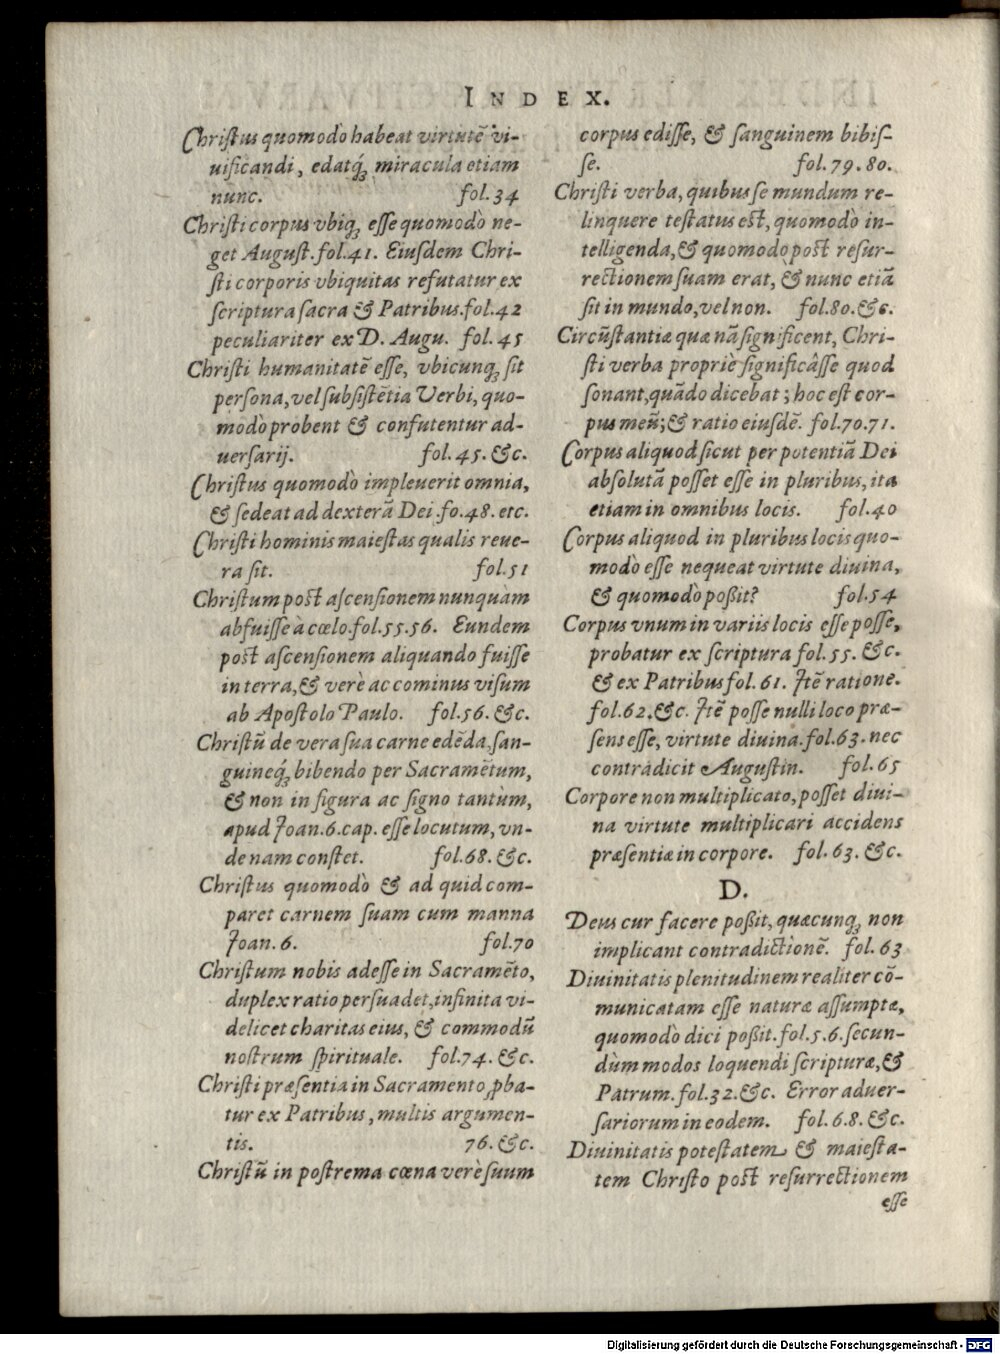 INDEX.
Christus quomodò habeat virtutē vi-
uificandi, edatq́ꝫ miracula etiam
nunc. fol. 34
Christi corpus vbiqꝫ esse quomodò ne-
get August. fol. 41. Eiusdem Chri-
sti corporis vbiquitas refutatur ex
scriptura sacra & Patribus. fol. 42
peculiariter ex D. Augu. fol. 45
Christi humanitatē esse, vbicunqꝫ sit
persona, vel subsistētia Verbi, quo-
modò probent & confutentur ad-
uersarij. fol. 45. &c.
Christus quomodò impleuerit omnia,
& sedeat ad dexterā Dei. fo. 48. etc.
Christi hominis maiestas qualis reue-
ra sit. fol. 51
Christum post ascensionem nunquàm
abfuisse à cœlo. fol. 55. 56. Eundem
post ascensionem aliquando fuisse
in terra, & verè ac cominus visum
ab Apostolo Paulo. fol. 56. &c.
Christū de vera sua carne edēda, san-
guineq́ꝫ bibendo per Sacramētum,
& non in figura ac signo tantùm,
apud Joan. 6. cap. esse locutum, vn-
de nam constet. fol. 68. &c.
Christus quomodò & ad quid com-
paret carnem suam cum manna
Joan. 6. fol. 70
Christum nobis adesse in Sacramēto,
duplex ratio persuadet, infinita vi-
delicet charitas eius, & commodū
nostrum spirituale. fol. 74. &c.
Christi præsentia in Sacramento ꝓba-
tur ex Patribus, multis argumen-
tis. 76. &c.
Christū in postrema cœna verè suum
corpus edisse, & sanguinem bibis-
se. fol. 79. 80.
Christi verba, quibus se mundum re-
linquere testatus est, quomodò in-
telligenda, & quomodò post resur-
rectionem suam erat, & nunc etiā
sit in mundo, vel non. fol. 80. &c.
Circūstantiæ quæ nā significent, Chri-
sti verba propriè significâsse quod
sonant, quādo dicebat; hoc est cor-
pus meū; & ratio eiusdē. fol. 70. 71.
Corpus aliquod sicut per potentiā Dei
absolutā posset esse in pluribus, ita
etiam in omnibus locis. fol. 40
Corpus aliquod in pluribus locis quo-
modò esse nequeat virtute diuina,
& quomodò poßit? fol. 54
Corpus vnum in variis locis esse posse,
probatur ex scriptura fol. 55. &c.
& ex Patribus fol. 61. Jtē ratione.
fol. 62. &c. Jtē posse nulli loco præ-
sens esse, virtute diuina. fol. 63. nec
contradicit Augustin. fol. 65
Corpore non multiplicato, posset diui-
na virtute multiplicari accidens
præsentiæ in corpore. fol. 63. &c.
D.
Deus cur facere poßit, quæcunqꝫ non
implicant contradictionē. fol. 63
Diuinitatis plenitudinem realiter cō-
municatam esse naturæ assumptæ,
quomodò dici poßit. fol. 5. 6. secun-
dùm modos loquendi scripturæ, &
Patrum. fol. 32. &c. Error aduer-
sariorum in eodem. fol. 6. 8. &c.
Diuinitatis potestatem & maiesta-
tem Christo post resurrectionem
esse
Digitalisierung gefördert durch die Deutsche Forschungsgemeinschaft - DFG